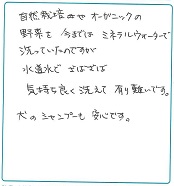 自然栽培やオーガニックの
野菜を 今までは ミネラルウォーターで
洗っていたのですが
水道水で ざばざば
気持ち良く洗えて 有り難いです。
犬のシャンプーも 安心です。